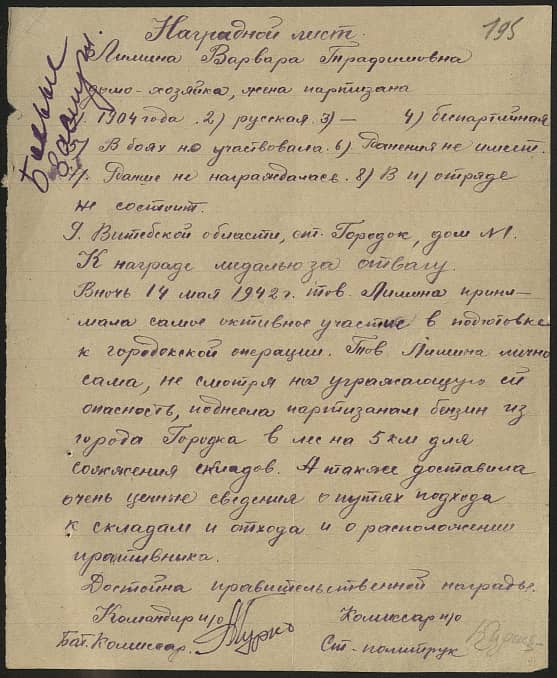 195
Наградной лист.
Лимина Варвара Трафимовна
домо-хозяйка, жена партизана
1) 1904 года. 2) русская. 3) — 4) беспартийная
5) В боях не участвовала. 6) Ранения не имеет.
7). Ранше не награждалась. 8) В п/отряде
не состоит.
9. Витебской области, ст. Городок, дом №1.
К награде медалью за отвагу.
В ночь 14 мая 1942 г. тов. Лимина прини-
мала самое активное участие в подготовке
к городокской операции. Тов Лимина лично
сама, не смотря на угражающую ей
опасность, поднесла партизанам бензин из
города Городка в лес на 5 км для
сожжения складов. А также доставила
очень ценные сведения о путях подхода
к складам и отхода и о расположении
пративника.
Достойна правительственной награды.
Командир п/о Комиссар п/о
Бат. Комиссар. Ст. политрук